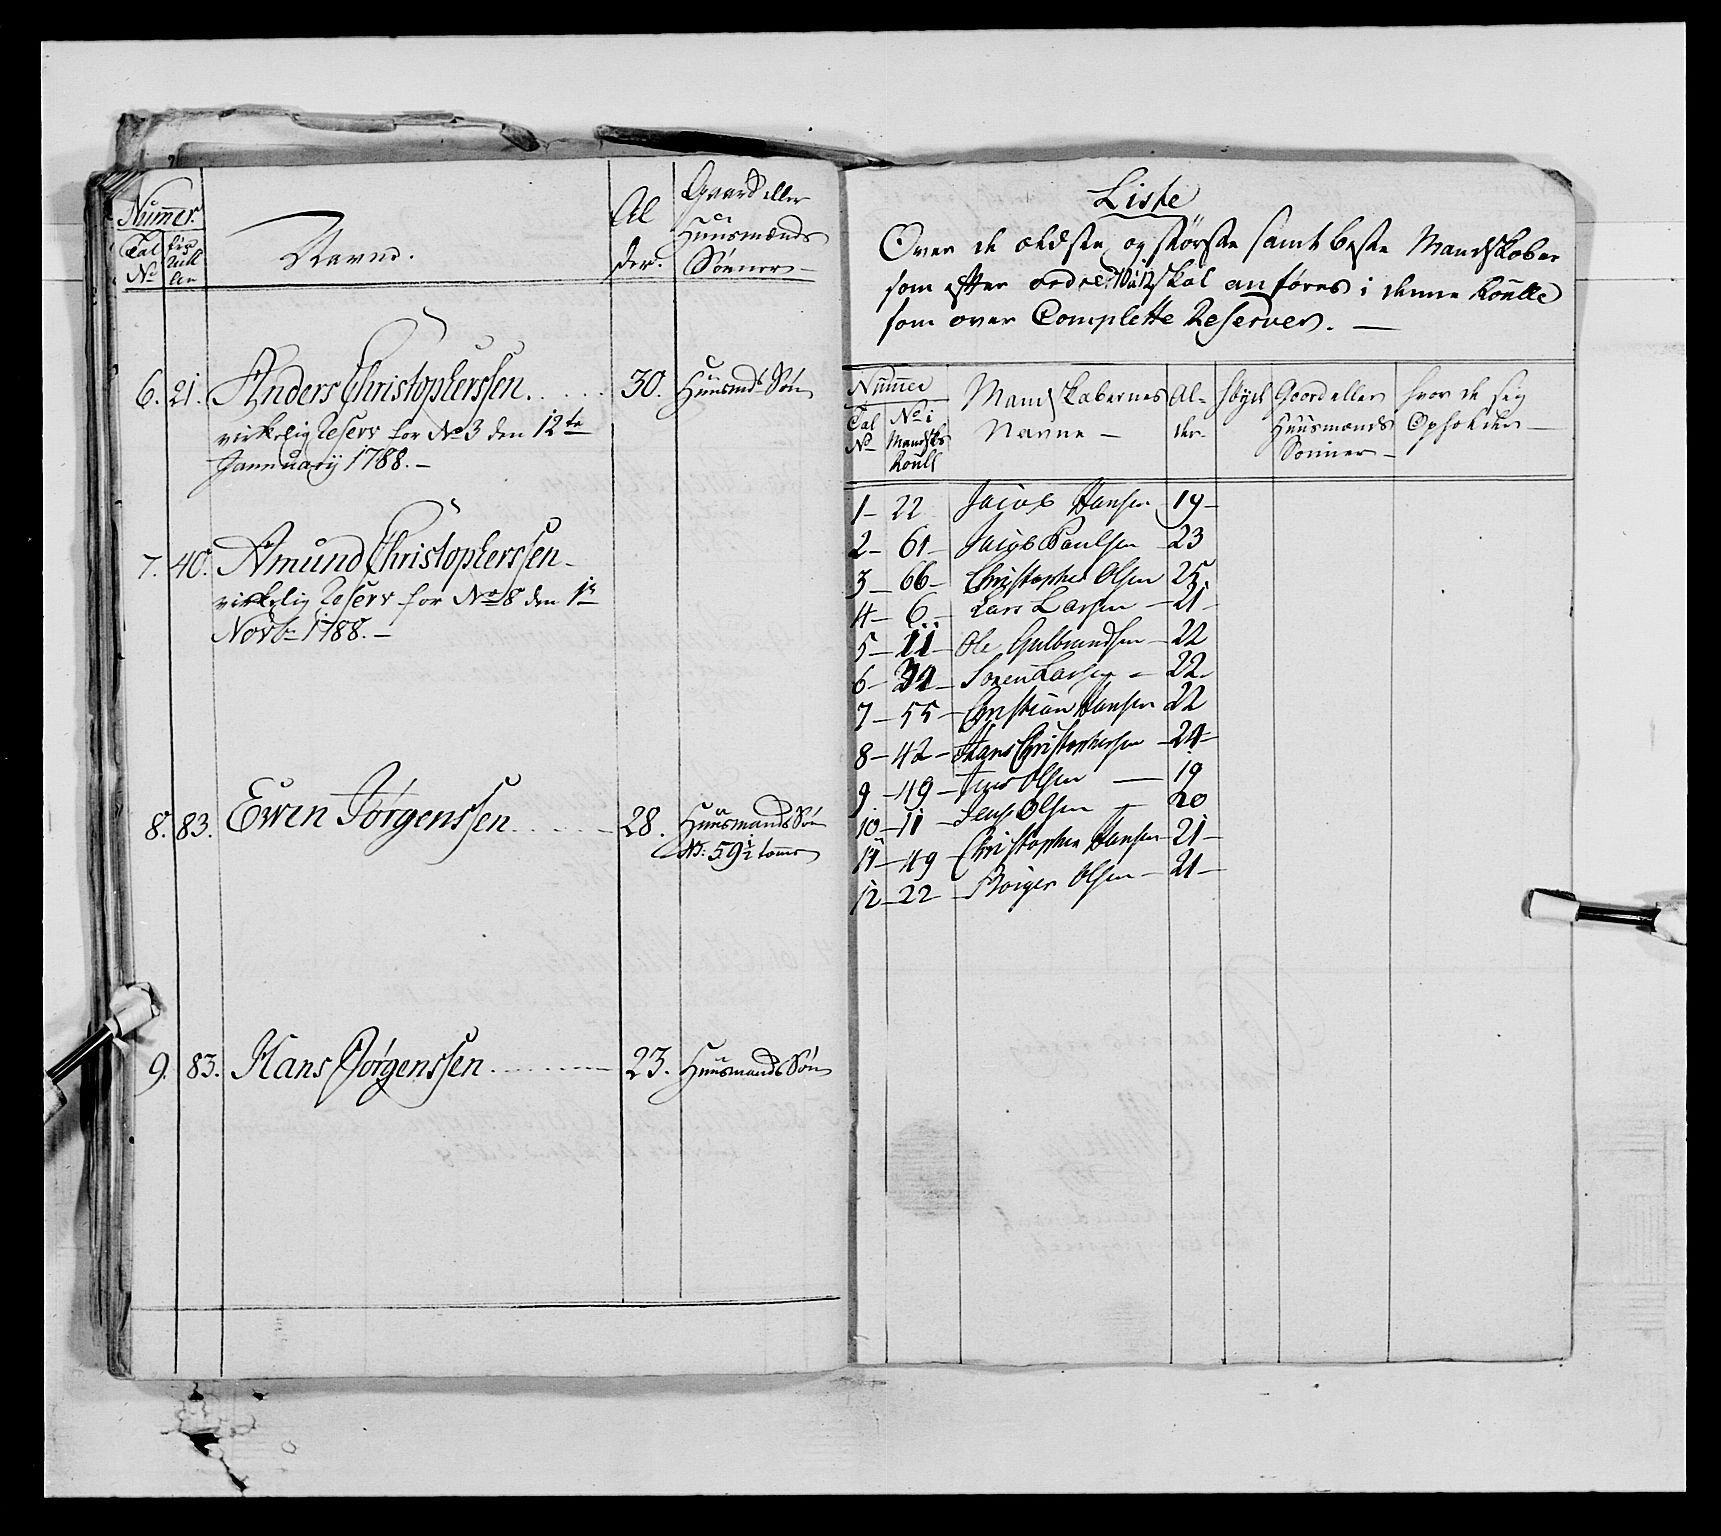 Nummer.
Tal No
fra Rull len
Navne.
Al der.
Gaard eller
Huusmænds
Sønner
6. 21. Anders Christopherssen. 30. Huusmds Søn
virkelig Reserv for No 3 den 12te
Jannuarij 1788.
7. 40. Amund Christopherssen
virkelig Reserv for No 8 den 1te
Novbr 1788.
8. 83. Ewen Jørgenssen 28. Huusmands Søn
59 1/2 tomme
9. 83. Hans Jørgenssen 23. Huusmands Søn
Liste
Over de ældste og største samt beste Mandskaber
som efter ordre 10 à 12 skal anføres i denne Roulle
som over Complette Reserver.
Nummer
Tal No
No i Mandsks Roull
Mandskabernes
Navne
Al-
der
Høyd
Goord eller
Huusmænds
Sønner
hvor de sig
Opholder
1 - 22 Jacob Hansen 19
2 - 61 - Jacob Paulsen 23
3 - 66 - Christopher Olsen 25
4 - 6 - Lars Larsen - 21
5 - 11 - Ole Gulbrandsen 22
6 - 34 - Søren Larsen - 22
7 - 55 - Christian Hansen 22
8 - 42 - Hans Christophersen 24
9 - 49 - Olsen - 19
10 - 11 - Jens Olsen - 20
11 - 49 - Christopher Hansen 21
12 - 22 - Børger Olsen - 21